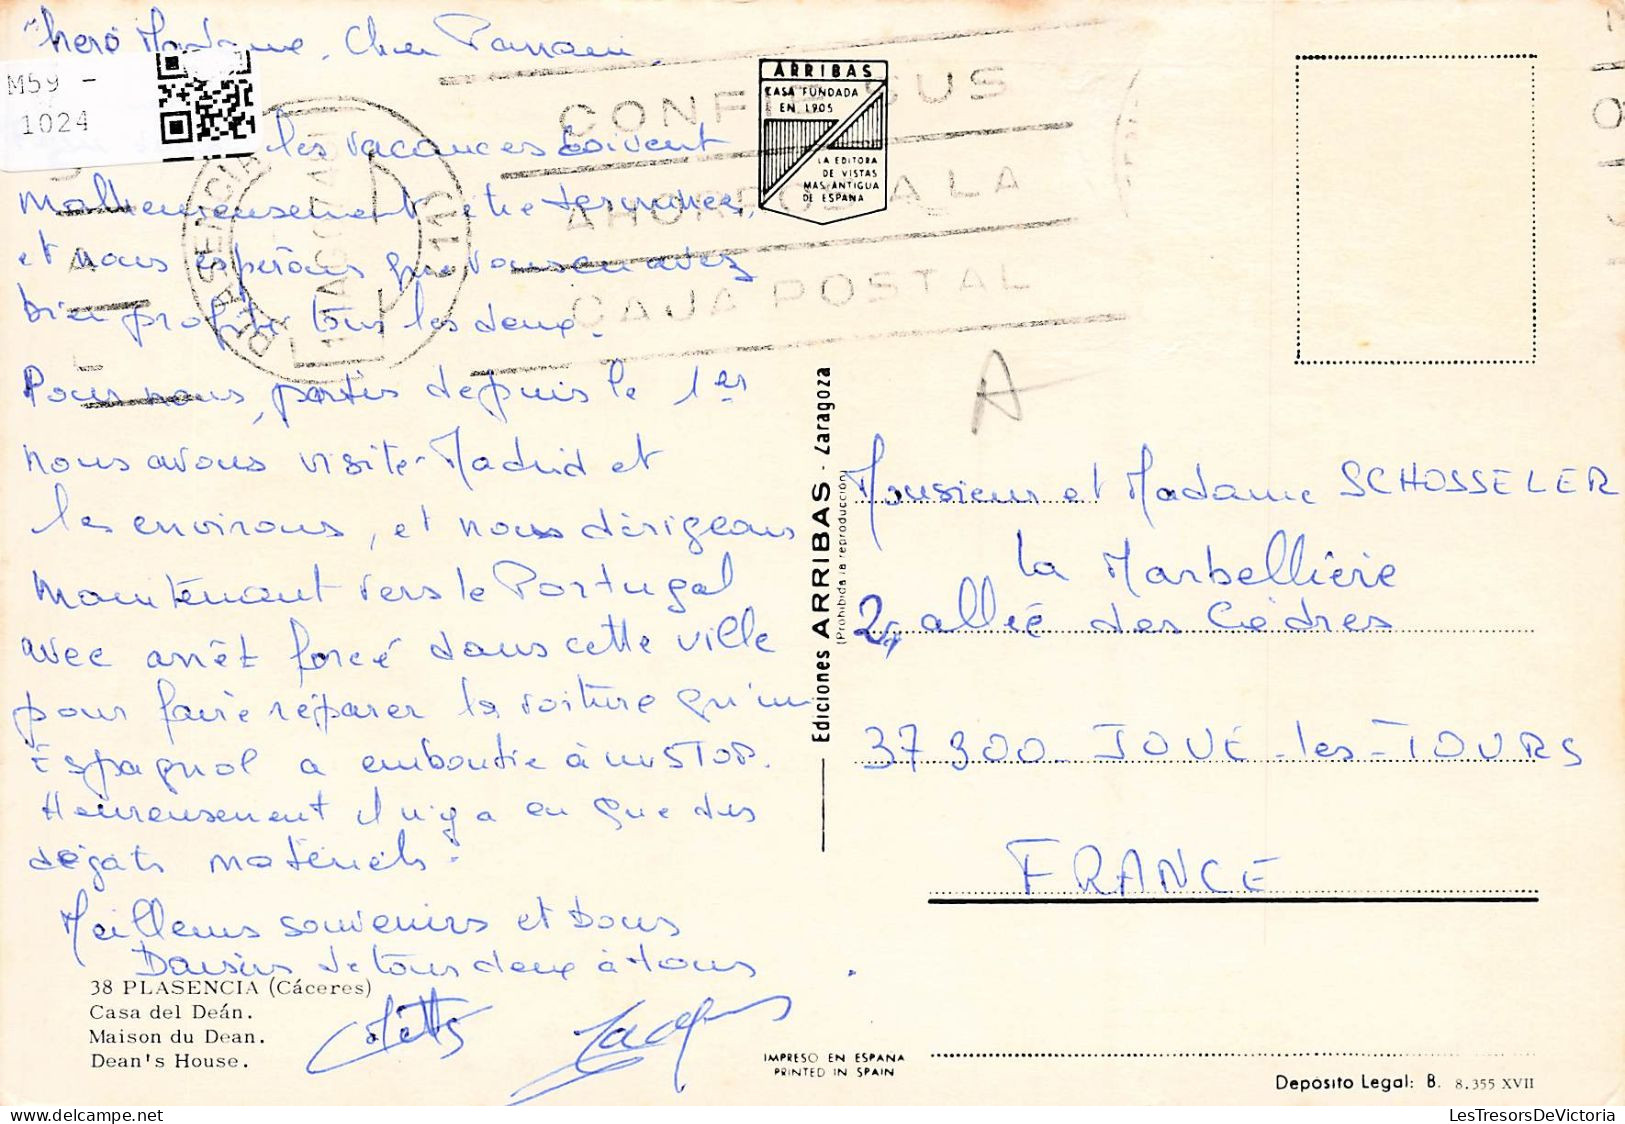 Chère Madame, Cher Parrain,
M59 -
1024
les vacances doivent
malheureusement être terminées,
et nous espérons que vous en avez
bien profité tous les deux.
Pour nous, partis depuis le 1er
nous avons visité Madrid et
les environs, et nous dirigeons
maintenant vers le Portugal
avec arrêt forcé dans cette ville
pour faire réparer la voiture qu'un
Espagnol a emboutie à un STOP.
Heureusement il n'y a eu que des
dégats matériels.
Meilleurs souvenirs et bons
Baisers de tous deux à tous
Colette Jacques
38 PLASENCIA (Cáceres)
Casa del Deán.
Maison du Dean.
Dean's House.
PLASENCIA
CONFIE SUS
AHORROS A LA
CAJA POSTAL
ARRIBAS
CASA FUNDADA
EN 1905
LA EDITORA
DE VISTAS
MAS ANTIGUA
DE ESPAÑA
Ediciones ARRIBAS - Zaragoza
(Prohibida la reproducción)
A
Monsieur et Madame SCHOSSELER
la Marbellière
24 allée des Cèdres
37300 JOUÉ-les-TOURS
FRANCE
IMPRESO EN ESPAÑA
PRINTED IN SPAIN
Depósito Legal: B. 8.355 XVII
delcampe.net
LesTresorsDeVictoria